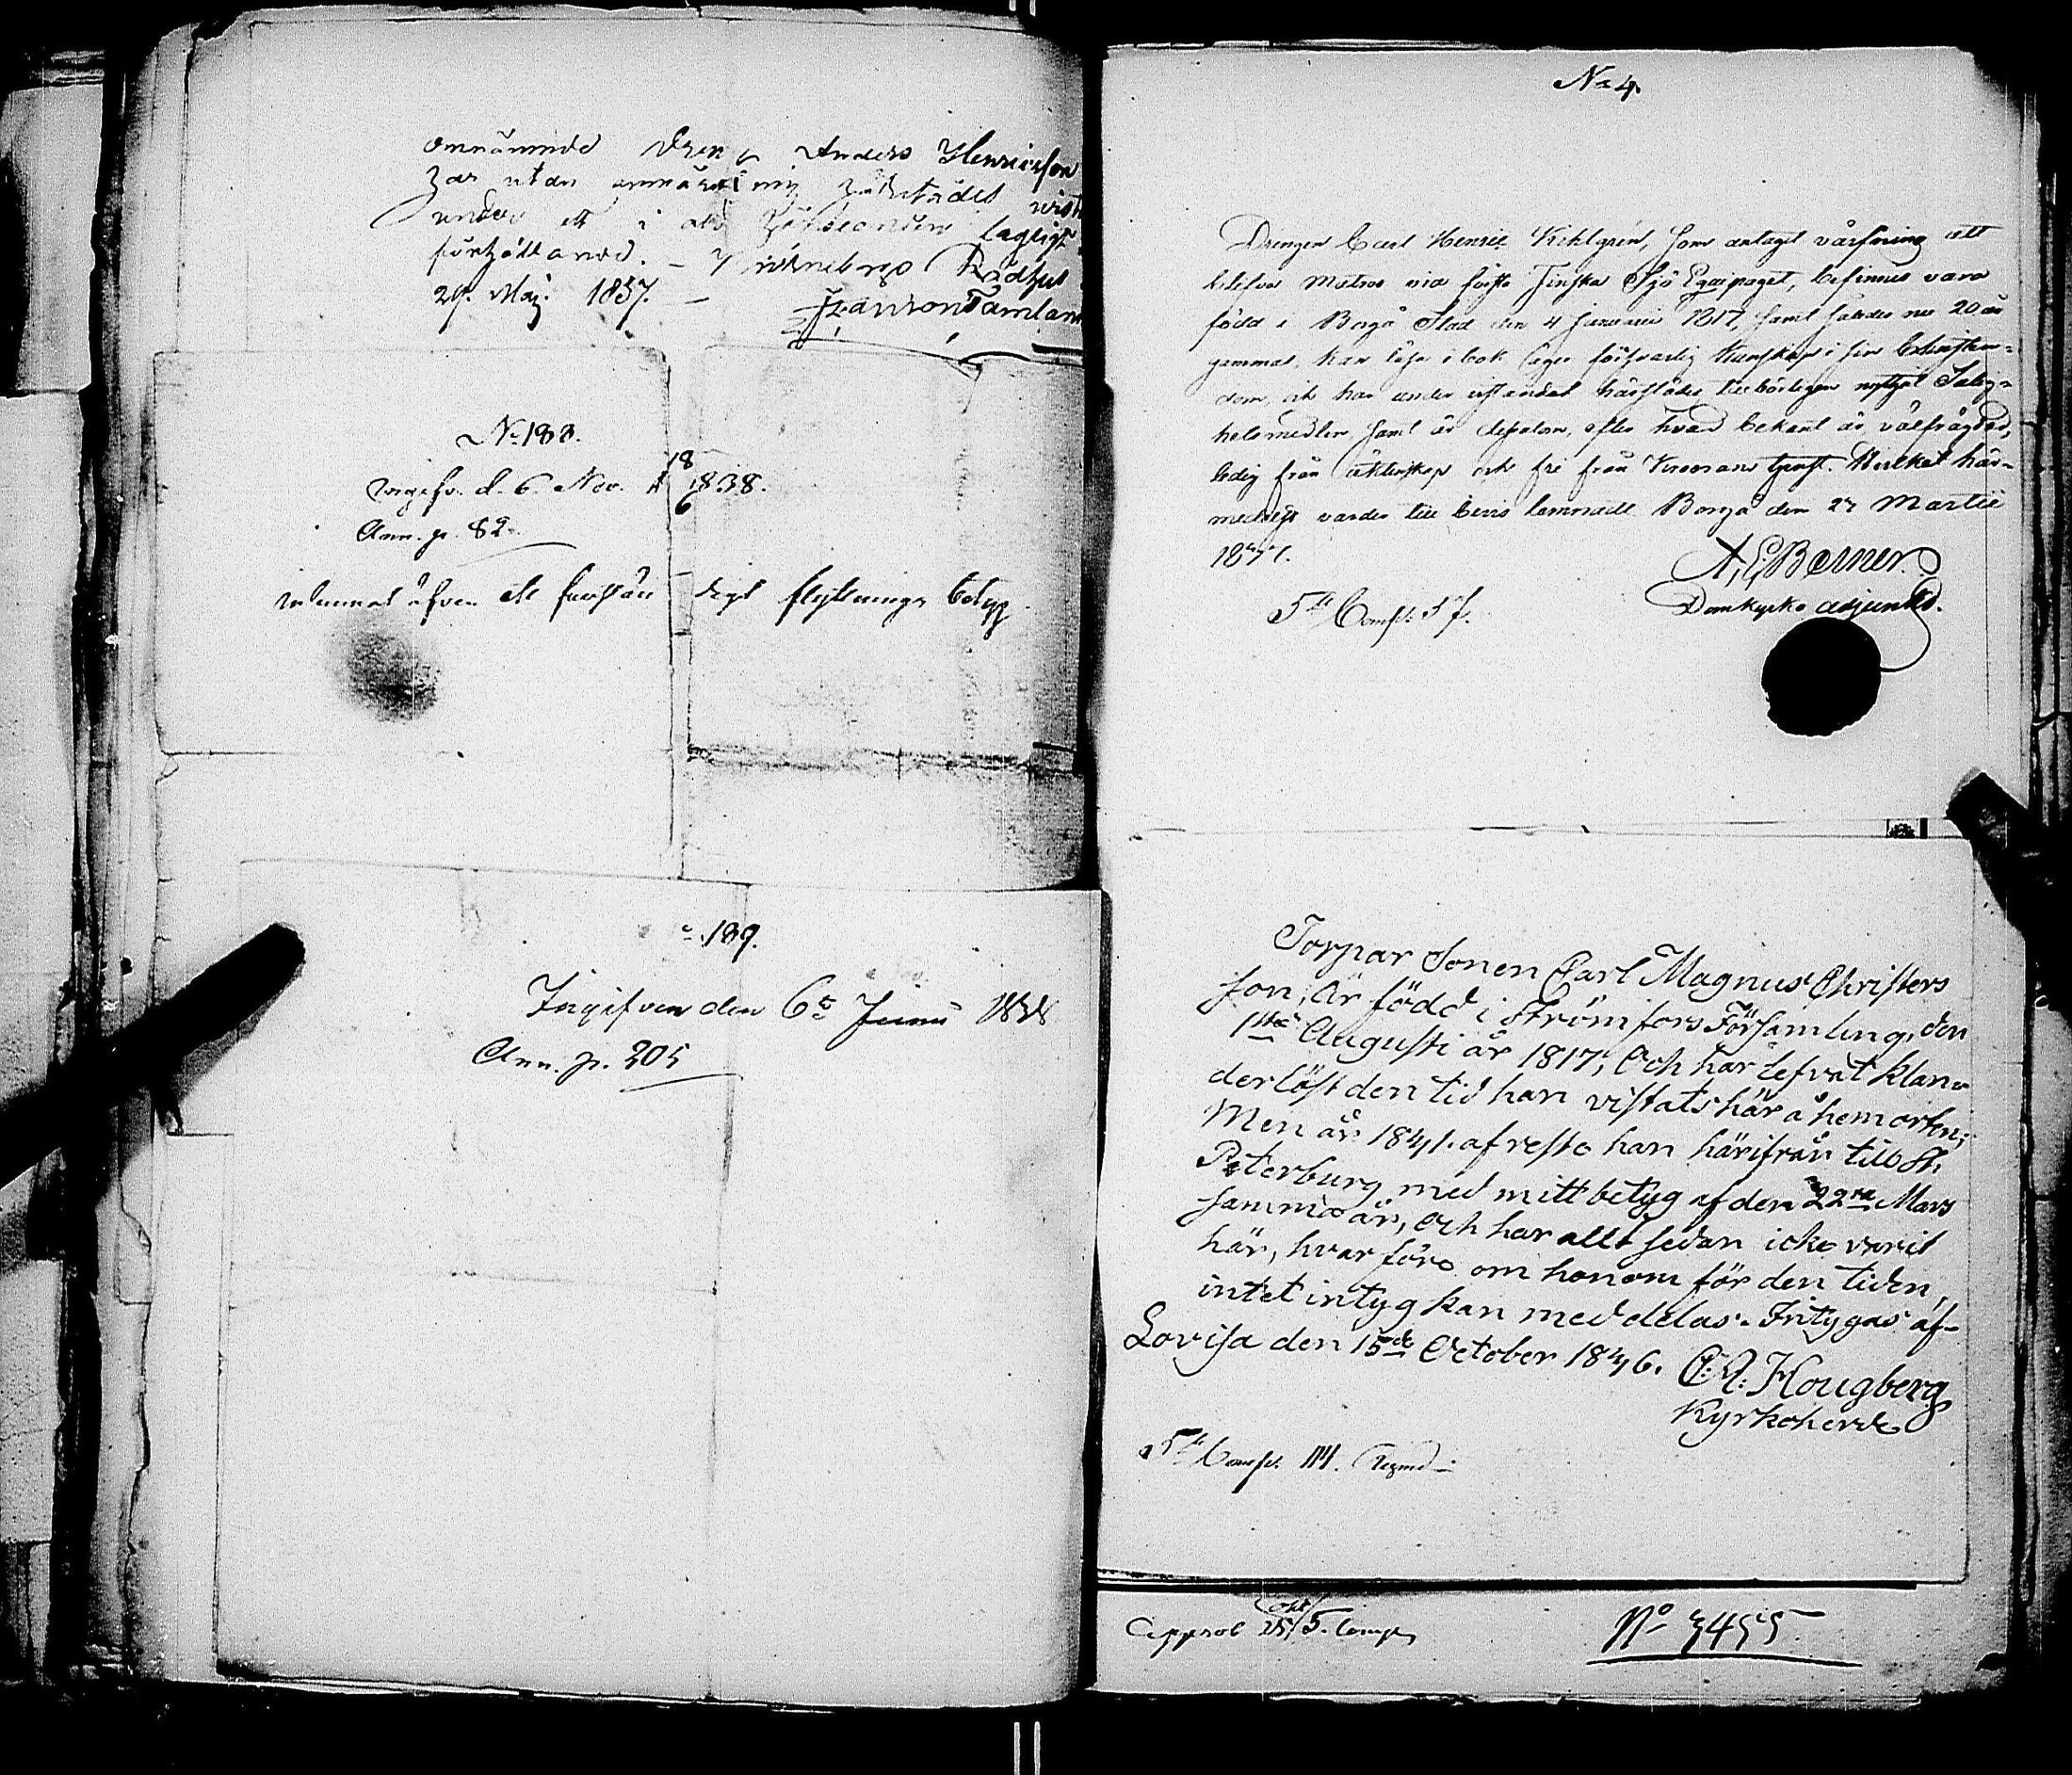 omnämnde Dreng Anders Henricsson
har utan anmärkning härstädes
under ett i alla hänseenden lagligt
förhållande. Rådhus
29. Maj. 1837.
No 188.
ingifv. d. 6 Nov. 1838.
18
6
Ann. p. 82.
inlemnat äfven ett flyttnings betyg
189.
Ingifven den 6 Junii 1838
Ann. p. 205
No 4.
Drengen Carl Henric Kihlgrén, som antagit värfning att
blifva Matros vid första Finska Sjö Equipaget, befinnes vara
född i Borgå Stad den 4 Januarii 1817, samt således nu 20 år
gammal, kan läsa i bok, eger försvarlig kunskap i sin Christen-
dom, och har under vistandet härstädes tillbörligen nyttjat Salig-
hetsmedlen, samt är dessutom, efter hvad bekant är, välfrägdad,
ledig från äktenskap och fri från Kronans tjenst. Hvilket här-
medelst varder till bevis lemnadt. Borgå den 27 Martii
1837.
A, E Borner.
Domkyrko adjunkt.
5te Comp: 57.
Torpar Sonen Carl Magnus Christers
son, är född i Strömfors Församling, den
1sta Augusti år 1817; Och har lefvat klan-
derlöst den tid han vistats här å hemorten;
Men år 1841. afreste han härifrån till St.
Peterburg med mitt betyg af den 22ra Mars
samma år, Och har allt sedan icke varit
här, hvarföre om honom för den tiden,
intet intyg kan meddelas. Intygas af-
Lovisa den 15de October 1846. C: A: Hougberg
Kyrkoherde
5te Comp. 114.
Capprol 5. Comp.
No 3455